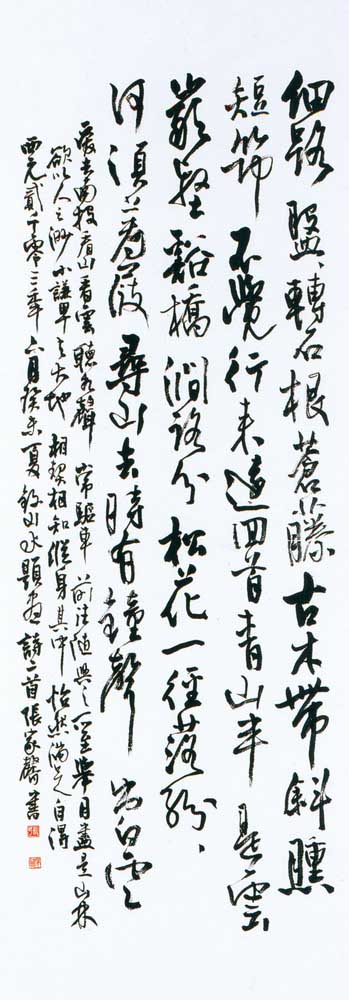 細路盤、轉石根蒼藤古木帶斜曛
短筇不覺行来遠回首青山半是雲
巖壑谿橋澗路分松花一徑落紛、
何須着屐尋山去時有鐘聲出白雲
愛去南投看山看雲聽水聲常驅車前往隨興之至舉目盡是山林
欲以人之渺小謙卑之大地相契相和縱身其中怡然滿足自得
西元貳千零三年六月癸未夏山水題畫詩二首張家馨書